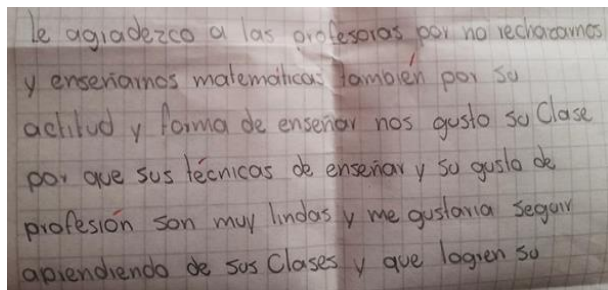 le agradezco a las profesoras por no rechazarnos
y enseñarnos matemáticas también por su
actitud y forma de enseñar nos gusto su Clase
por que sus técnicas de enseñar y su gusto de
profesión son muy lindas y me gustaria seguir
aprendiendo de sus Clases y que logren su